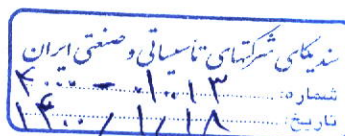 سندیکای شرکتهای تأسیساتی و صنعتی ایران
شماره: ۴۰۰۰-۱۰۱۳
تاریخ: ۱۴۰۰/۱/۱۸